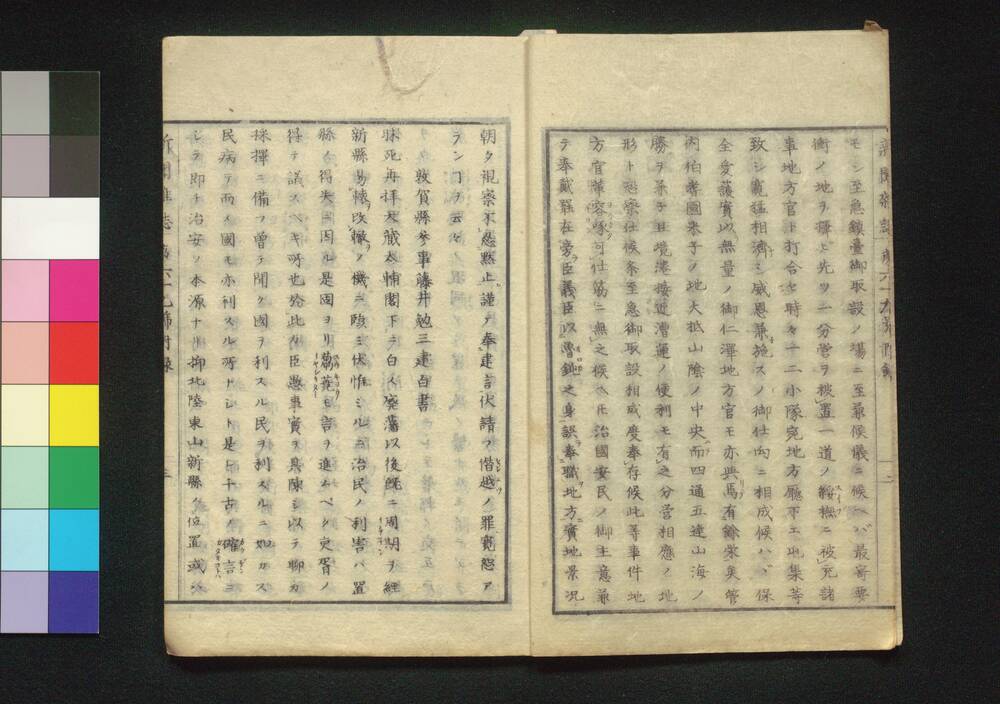 モシ至急鎮臺御取設ノ場ニ至兼候儀ニ候ヘバ最寄要
衝ノ地ヲ擇ヒ先ツ一分営ヲ被置一道ノ綏撫ニ被充諸
事地方官ト打合セ時々一二小隊宛地方廳下エ出集等
致シ寛猛相濟ミ威恩兼施スノ御仕向ニ相成候ハヾ保
全愛護實以無量ノ御仁澤地方官モ亦与有餘栄矣管
内伯耆國米子ノ地大抵山陰ノ中央而四通五達山海ノ
勝ヲ兼子且境港接近漕運ノ便利モ有之分営相應ノ地
形ト恐察仕候条至急御取設相成度奉存候此等事件地
方官輩容喙可仕筋ニ無之候ヘ𪜈治國安民ノ御主意兼
テ奉戴罷在旁臣義臣以魯鈍之身誤奉職地方實地景況
朝夕視察不忍黙止謹テ奉建言伏請フ僭越ノ罪寛恕ア
ランヿヲ云々
敦賀縣参事藤井勉三建白書
昧死再拝大蔵大輔閣下ニ白ス廃藩以後既ニ周期ヲ経
新縣易轅改轍ノ機ニ際ミ伏惟ミルニ治民ノ利害ハ置
縣ノ得失ニ因ル是國ヨリ蒭蕘モ言ヲ進ムベク吏胥ノ
得テ議スベキ所也於此乎臣愚事實ヲ具陳シ以テ聊カ
採擇ニ備フ曽テ聞ク國ヲ利スル民ヲ利スルニ如カス
民病テ而メ國モ亦利スル所ナシト是日千古ノ確言ニ
シテ即チ治安ノ本源ナリ抑北陸東山新縣ノ位置或ハ
新聞雑誌第六十九號附録